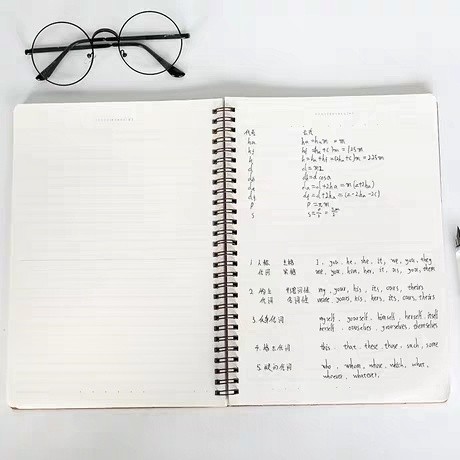 代号 公式
ha ha=ham =m
hf hf=(ha+c)m=1.25m
h h=ha+hf=(2ha+c)m=2.25m
d d=mz
db db=d cosα
da da=d+2ha=m(z+2ha)
df
P P=πm
S S=
1. 人称 主格 I, you, he, she, it, we, you, they
代词 宾格 me, you, him, her, it, us, you, them
2. 物主 形容词性 my, your, his, its, ours, theirs
代词 名词性 yours, his, hers, its, ours, theirs
3. 反身代词 myself, yourself, himself, herself, itself
ourselves, yourselves, themselves
4. 指示代词 this, that, these, those, such, some
5. 疑问代词 who, whom, whose, which, what,
whoever, whatever,